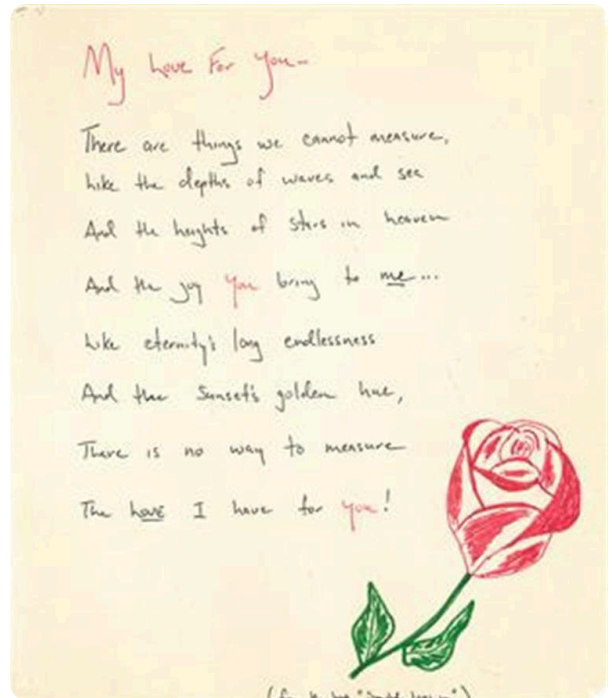 My Love For You—
There are things we cannot measure,
Like the depths of waves and sea
And the heights of stars in heaven
And the joy you bring to me...
Like eternity's long endlessness
And the Sunset's golden hue,
There is no way to measure
The Love I have for you!